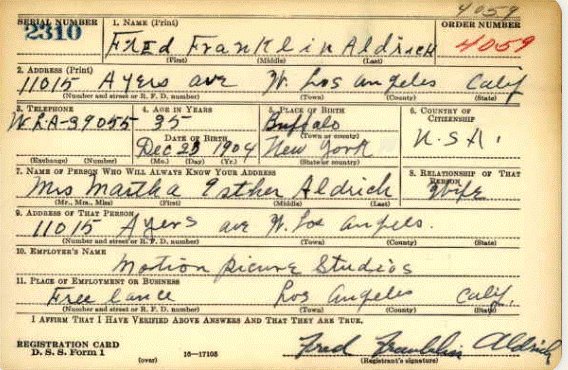 4059
SERIAL NUMBER 1. NAME (Print) ORDER NUMBER
2310 FREd FranklinAldrich 4059
(First) (Middle) (Last)
2. ADDRESS (Print)
11015 Ayers ave W. Los Angeles Calif
(Number and street or R. F. D. number) (Town) (County) (State)
3. TELEPHONE 4. AGE IN YEARS 5. PLACE OF BIRTH 6. COUNTRY OF CITIZENSHIP
W.L.A-39055 35 Buffalo U.S.A.
DATE OF BIRTH (Town or county)
Dec 23 1904 New York
(Exchange) (Number) (Mo.) (Day) (Yr.) (State or country)
7. NAME OF PERSON WHO WILL ALWAYS KNOW YOUR ADDRESS 8. RELATIONSHIP OF THAT PERSON
Mrs Martha Esther Aldrich Wife
(Mr., Mrs., Miss) (First) (Middle) (Last)
9. ADDRESS OF THAT PERSON
11015 Ayers ave W. Los Angeles.
(Number and street or R. F. D. number) (Town) (County) (State)
10. EMPLOYER'S NAME
Motion Picure Studios
11. PLACE OF EMPLOYMENT OR BUSINESS
Free lance Los Angeles Calif.
(Number and street or R. F. D. number) (Town) (County) (State)
I AFFIRM THAT I HAVE VERIFIED ABOVE ANSWERS AND THAT THEY ARE TRUE.
REGISTRATION CARD
D. S. S. Form 1 (over) 16—17105 Fred Franklin Aldrich
(Registrant's signature)